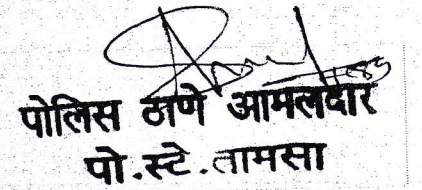 पोलिस ठाणे आमलदार
पो.स्टे.तामसा